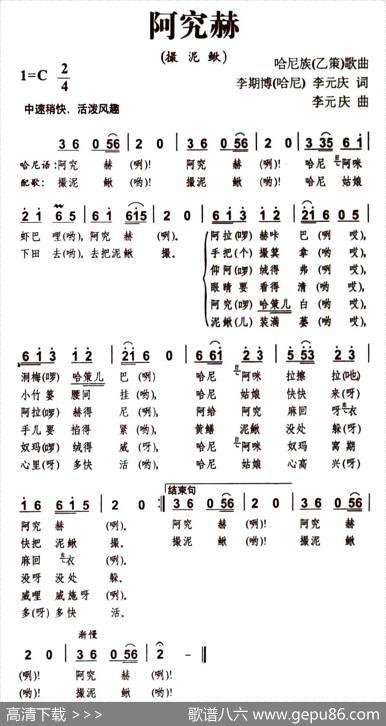 阿究赫
(撮 泥 鳅)
哈尼族(乙策)歌曲
1=C 2/4
李期博(哈尼) 李元庆 词
李元庆 曲
中速稍快、活泼风趣
3 6 0 56 | 2 0 | 3 6 0 56 | 2 0 | 3 35 6 1 |
哈尼语:阿究 赫 (咧)! 阿究 赫 (咧)! 哈尼 阿咪
配歌:撮泥 鳅 (哟)! 撮泥 鳅 (哟)! 哈尼 姑娘
2 1 6 5 | 6 1 615 | 2 0 | 6 1 3 1 2 | 21 6 0 5 |
虾巴 哩(哟),阿究 赫 (咧)。 阿拉(啰) 赫咔 巴 (咧 哎),
下田 去(哟),去把泥鳅 撮。 手把(个) 撮箕 拿 (哟 哎),
仰阿(啰) 绒得 弗 (咧 哎),
眼睛要 看得 清 (哟 哎),
阿究(啰) 哈策儿 白 (哟 哎),
泥鳅(儿) 装满 篓 (哟 哎),
6 1 3 1 2 | 21 6 | 2 0 | 6 61 2 3 | 5 53 2 3 |
洞梅(啰) 哈策儿 巴 (咧) 哈尼 阿咪 拉擦 拉(吔)
小竹篓 腰间 挂 (哟), 哈尼 姑娘 快快 来(呀)
阿拉(啰) 赫得 尼 (咧), 阿给 阿究 麻回 呀 衣
手儿要 掐得 紧 (哟), 黄鳝 泥鳅 没处 躲(呀)
奴玛(啰) 绒得 威 (呀), 哈尼 阿咪 奴玛 窝期
心里(呀) 多快 活 (哟), 哈尼 姑娘 心高 兴(呀)
结束句
1 6 615 | 2 0 :| 3 6 0 56 | 2 0 | 3 6 0 56 |
阿究 赫 (咧)。 阿究 赫 (咧)! 阿究 赫
快把 泥鳅 撮。 撮泥 鳅 (哟)! 撮泥 鳅
麻回 衣 (咧)。
没呀 没处 躲。
威哩 威施呀 (咧)。
多(呀)多快 活。
渐慢
2 0 | 3 6 0 56 | 2 - ‖
(咧)! 阿究 赫 (咧)!
(哟)! 撮泥 鳅 (哟)!
高清下载 >>>
歌谱八六 www.gepu86.com